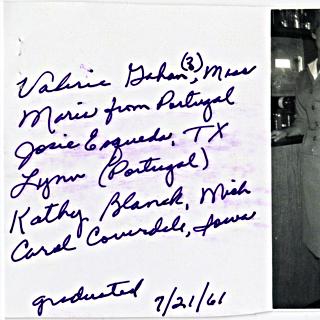 Valerie Gahan(3), Mass
Marie from Portugal
Josie Esqueda, TX
Lynn (Portugal)
Kathy Blanck, Mich
Carol Coverdale, Iowa
graduated 7/21/61